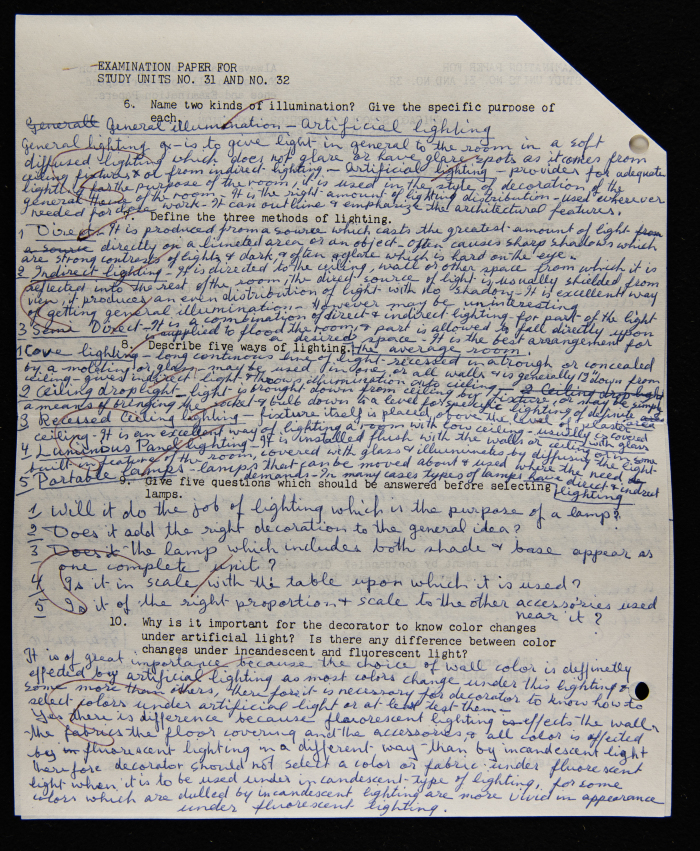 EXAMINATION PAPER FOR
STUDY UNITS NO. 31 AND NO. 32
6. Name two kinds of illumination? Give the specific purpose of
each.
General illumination - Artificial lighting
General lighting is to give light in general to the room in a soft
diffused lighting which does not glare or have glare spots as it comes from
ceiling fixtures & or from indirect lighting - Artificial lighting - provides for adequate
lighting for the purpose of the room, it is used in the style of decoration of the
general of the room. It is the right amount of lighting distribution - used wherever
needed for work - It can outline & emphasize the architectural features.
7. Define the three methods of lighting.
1 Direct - It is produced from a source which casts the greatest amount of light from
a source directly on a limeted area or an object - Often causes sharp shadows which
are strong contrasts of lights & dark, & often a glare which is hard on the eye -
2 Indirect lighting - It is directed to the ceiling, wall or other space from which it is
reflected into the rest of the room, the direct source of light is usually shielded from
view it produces an even distribution of light with no shadow - It is excellent way
of getting general illumination. However may be uninteresting.
3 Semi Direct - It is a combination of direct & indirect lighting - for part of the light
is supplied to flood the room, & part is allowed to fall directly upon
a desired space - It is the best arrangement for
the average room.
8. Describe five ways of lighting.
1 Cove lighting - long continuous line of light - recessed in a trough or concealed
by a molding or glass - may be used in one, or all walls & is generally 12" down from
ceiling - gives indirect light, throws illumination onto ceiling -
2 Ceiling droplight - light is brought down from ceiling by fixture or may be simply
a means of bringing the socket & bulb down to a level for specific lighting of definite area
3 Recessed Ceiling lighting - fixture itself is placed above the level of plaster
ceiling - It is an excellent way of lighting a room with low ceiling - usually is covered with glass
4 Luminous Panel lighting - It is installed flush with the walls or ceiling or in some
built in feature of the room, covered with glass & illuminates by diffusing the light -
5 Portable lamps - lamps that can be moved about & used where the need
demands - In many cases types of lamps have direct & indirect
lighting
9. Give five questions which should be answered before selecting
lamps.
1 Will it do the job of lighting which is the purpose of a lamp?
2 Does it add the right decoration to the general idea?
3 Does the lamp which includes both shade & base appear as
one complete unit?
4 Is it in scale with the table upon which it is used?
5 Is it of the right proportion & scale to the other accessories used
near it?
10. Why is it important for the decorator to know color changes
under artificial light? Is there any difference between color
changes under incandescent and fluorescent light?
It is of great importance because the choice of wall color is deffinetly
effeded by artificial lighting as most colors change under this lighting &
some more than others, therefor it is necessary for decorator to know how to
select colors under artificial light or at least test them -
Yes there is difference because flourescent lighting effects the walls
the fabrics the floor covering and the accessories, & all color is effected
by fluorescent lighting in a different way than by incandescent light
therefore decorator should not select a color or fabric under fluorescent
light when it is to be used under incandescent type of lighting, for some
colors which are dulled by incandescent lighting are more vivid in appearance
under fluorescent lighting.